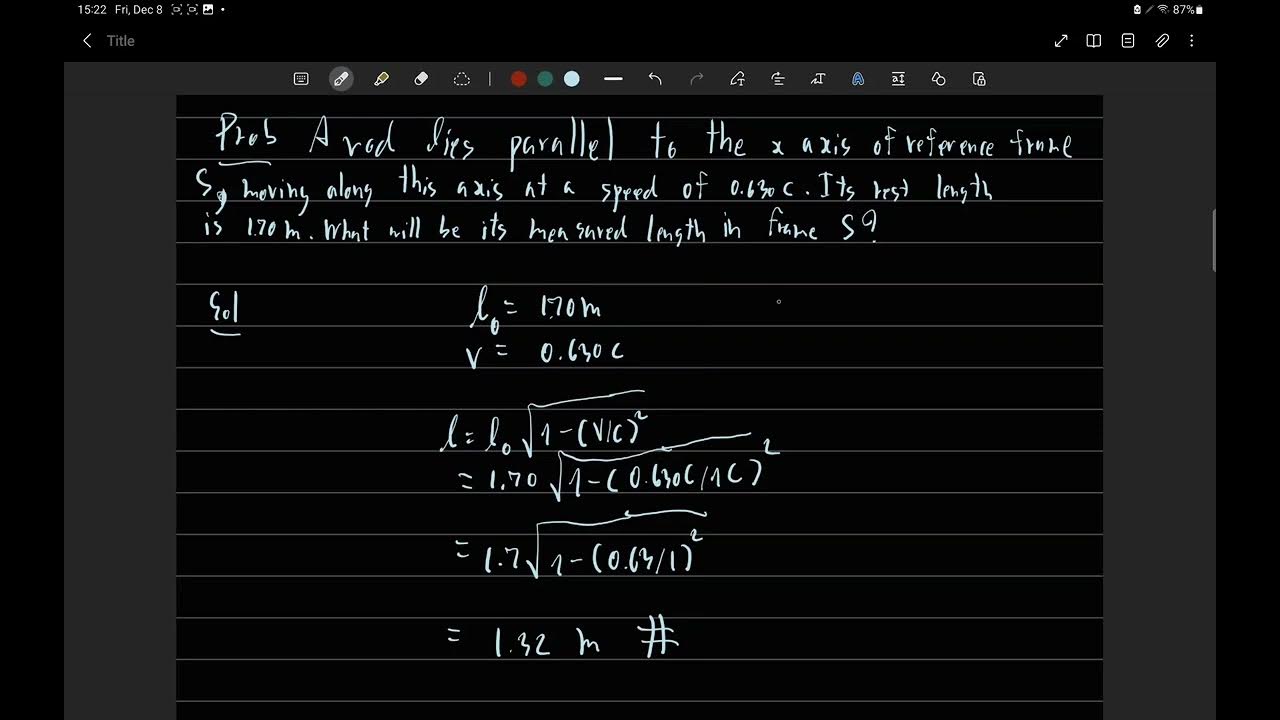 15:22 Fri, Dec 8
87%
Title
Prob A rod lies parallel to the x axis of reference frame
S, moving along this axis at a speed of 0.630c. Its rest length
is 1.70 m. What will be its measured length in frame S?
Sol
l₀ = 1.70 m
v = 0.630 c
l = l₀ √1-(v/c)²
= 1.70 √1-(0.630c/1c)²
= 1.7 √1-(0.63/1)²
= 1.32 m #